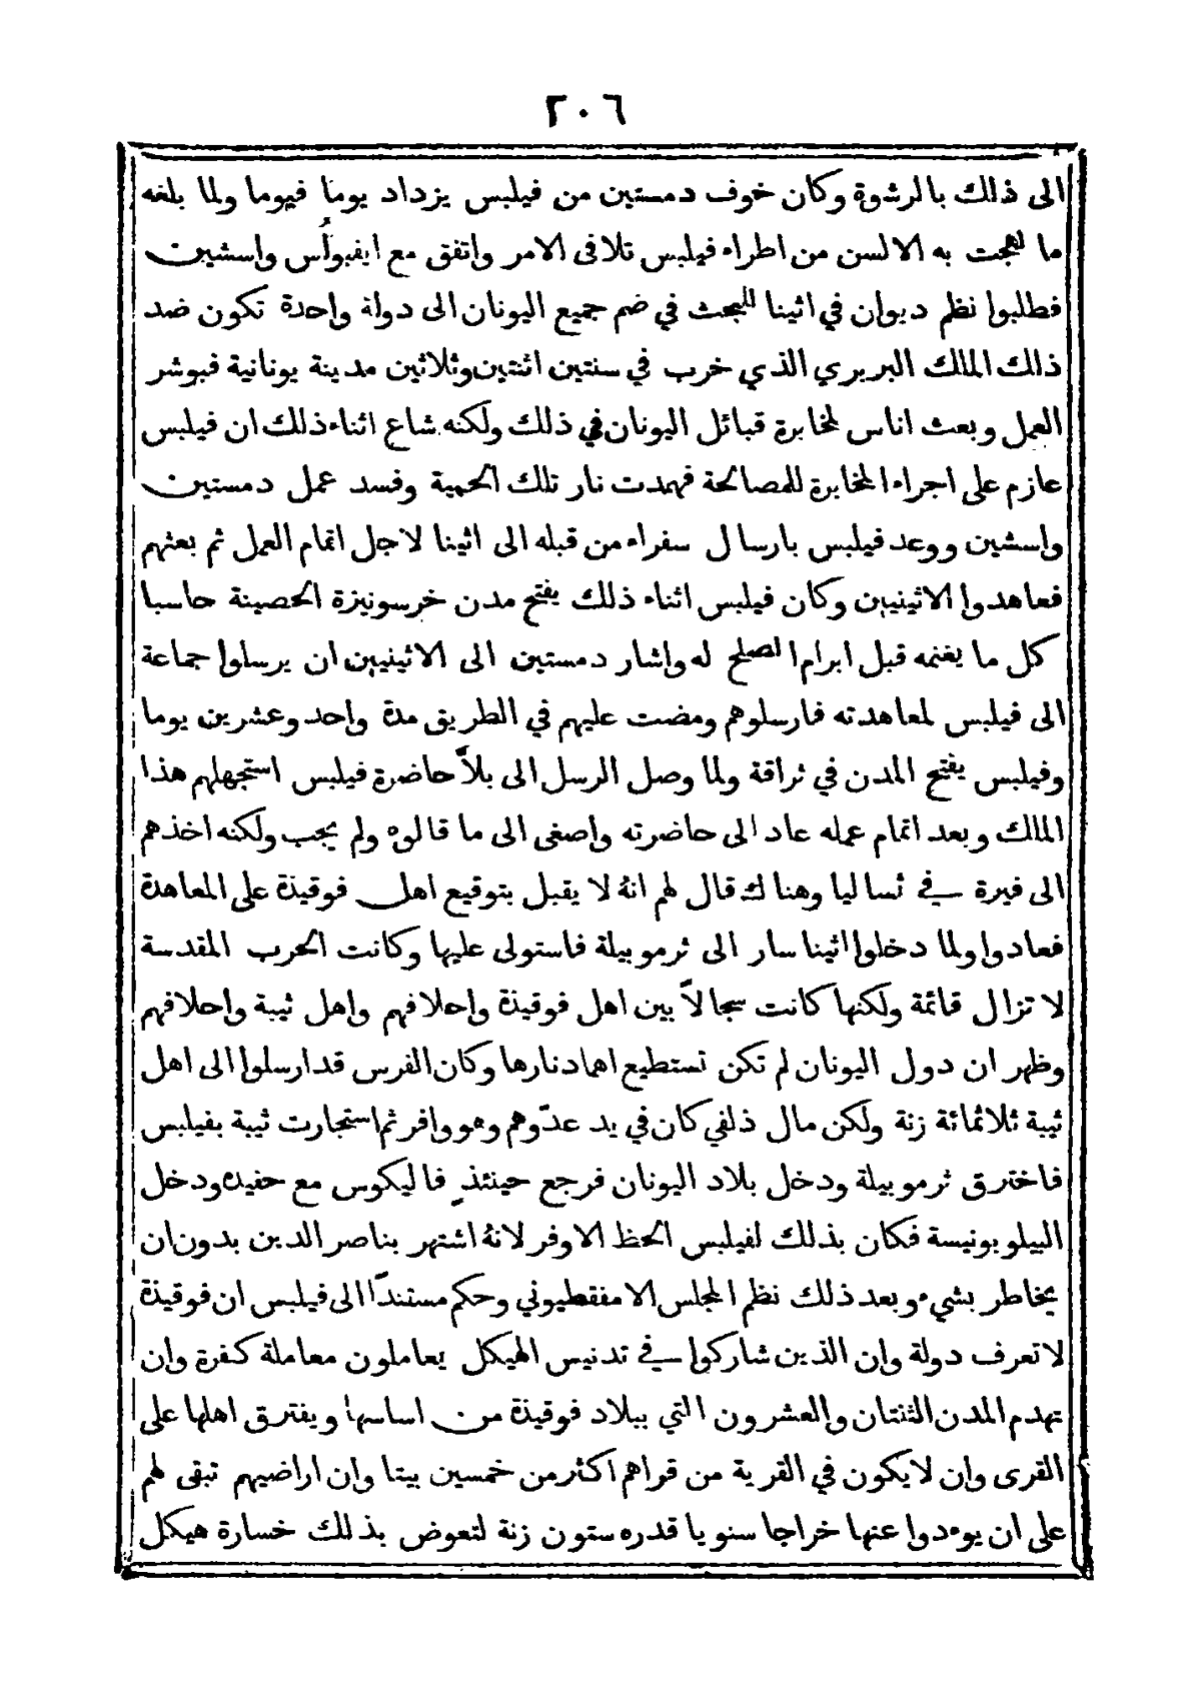 ٢٠٦
الى ذلك بالرشوة وكان خوف دمستين من فيلبس يزداد يوماً فيوما ولما بلغه
ما لهجت به الالسن من اطراء فيلبس تلافى الامر واتفق مع ايفبولُس واسشين
فطلبوا نظم ديوان في اثينا للبحث في ضم جميع اليونان الى دولة واحدة تكون ضد
ذلك الملك البربري الذي خرب في سنتين اثنتين وثلاثين مدينة يونانية فبوشر
العمل وبعث اناس لمخابرة قبائل اليونان في ذلك ولكنه شاع اثناء ذلك ان فيلبس
عازم على اجراء المخابرة للمصالحة فهمدت نار تلك الحمية وفسد عمل دمستين
واسشين ووعد فيلبس بارسال سفراء من قبله الى اثينا لاجل اتمام العمل ثم بعثهم
فعاهدوا الاثينيين وكان فيلبس اثناء ذلك يفتح مدن خرسونيزة الحصينة حاسبا
كل ما يغنمه قبل ابرام الصلح له واشار دمستين الى الاثينيين ان يرسلوا جماعة
الى فيلبس لمعاهدته فارسلوهم ومضت عليهم في الطريق مدة واحد وعشرين يوما
وفيلبس يفتح المدن في ثراقة ولما وصل الرسل الى بلاَّ حاضرة فيلبس استجهلهم هذا
الملك وبعد اتمام عمله عاد الى حاضرته واصغى الى ما قالوه ولم يجب ولكنه اخذهم
الى فيرة في تساليا وهناك قال لهم انهُ لا يقبل بتوقيع اهل فوقيذة على المعاهدة
فعادوا ولما دخلوا اثينا سار الى ثرموبيلة فاستولى عليها وكانت الحرب المقدسة
لا تزال قائمة ولكنها كانت سجالاً بين اهل فوقيذة واحلافهم واهل ثيبة واحلافهم
وظهر ان دول اليونان لم تكن تستطيع اهماد نارها وكان الفرس قد ارسلوا الى اهل
ثيبة ثلاثمائة زنة ولكن مال ذلفي كان في يد عدوّهم وهو وافر ثم استجارت ثيبة بفيلبس
فاخترق ثرموبيلة ودخل بلاد اليونان فرجع حينئذٍ فاليكوس مع حفيده ودخل
البيلوبونيسة فكان بذلك لفيلبس الحظ الاوفر لانهُ اشتهر بناصر الدين بدون ان
يخاطر بشيء وبعد ذلك نظم المجلس الامفقطيوني وحكم مستنداً الى فيلبس ان فوقيذة
لا تعرف دولة وان الذين شاركوا في تدنيس الهيكل يعاملون معاملة كفرة وان
تهدم المدن الثنتان والعشرون التي ببلاد فوقيذة من اساسها ويفترق اهلها على
القرى وان لا يكون في القرية من قراهم اكثر من خمسين بيتا وان اراضيهم تبقى لهم
على ان يوءدوا عنها خراجا سنويا قدره ستون زنة لتعوض بذلك خسارة هيكل